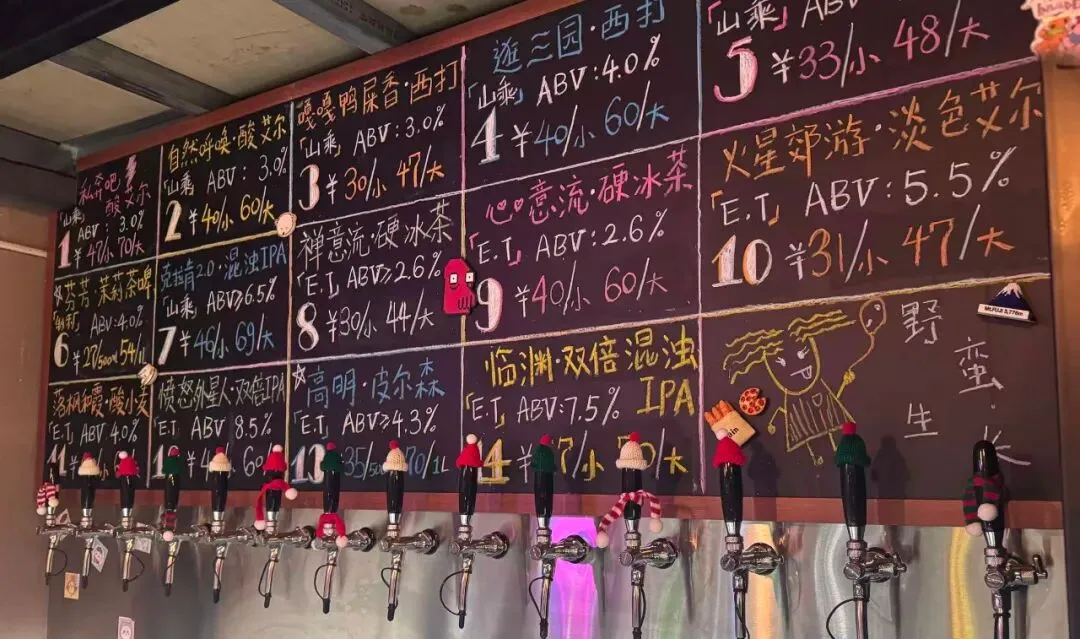 私奔吧
酸艾尔
「山乘」
ABV: 3.0%
1 ¥47/小 70/大
自然呼唤·酸艾尔
「山乘」 ABV: 3.0%
2 ¥40/小 60/大
嘎嘎鸭屎香·西打
「山乘」 ABV: 3.0%
3 ¥30/小 47/大
逛三园·西打
「山乘」 ABV: 4.0%
4 ¥40/小 60/大
「山乘」 ABV
5 ¥33/小 48/大
芬芳 茉莉茶啤
ABV: 4.0%
6 ¥27/500ml 54/1L
克拉肯2.0·混浊IPA
「山乘」 ABV≥6.5%
7 ¥46/小 69/大
禅意流·硬冰茶
「E.T」 ABV≥2.6%
8 ¥30/小 44/大
心心意流·硬冰茶
「E.T」 ABV: 2.6%
9 ¥40/小 60/大
火星郊游·淡色艾尔
「E.T」 ABV: 5.5%
10 ¥31/小 47/大
落枫和霞·酸小麦
「E.T」 ABV 4.0%
11
愤怒外星人·双倍IPA
「E.T」 ABV 8.5%
高明·皮尔森
「E.T」 ABV≥4.3%
13 35/500 70/1L
临渊·双倍混浊
IPA
「E.T」 ABV: 7.5%
14 ¥ 7/小 70/大
野
蛮
生
长
Mt.FUJI 3,776m